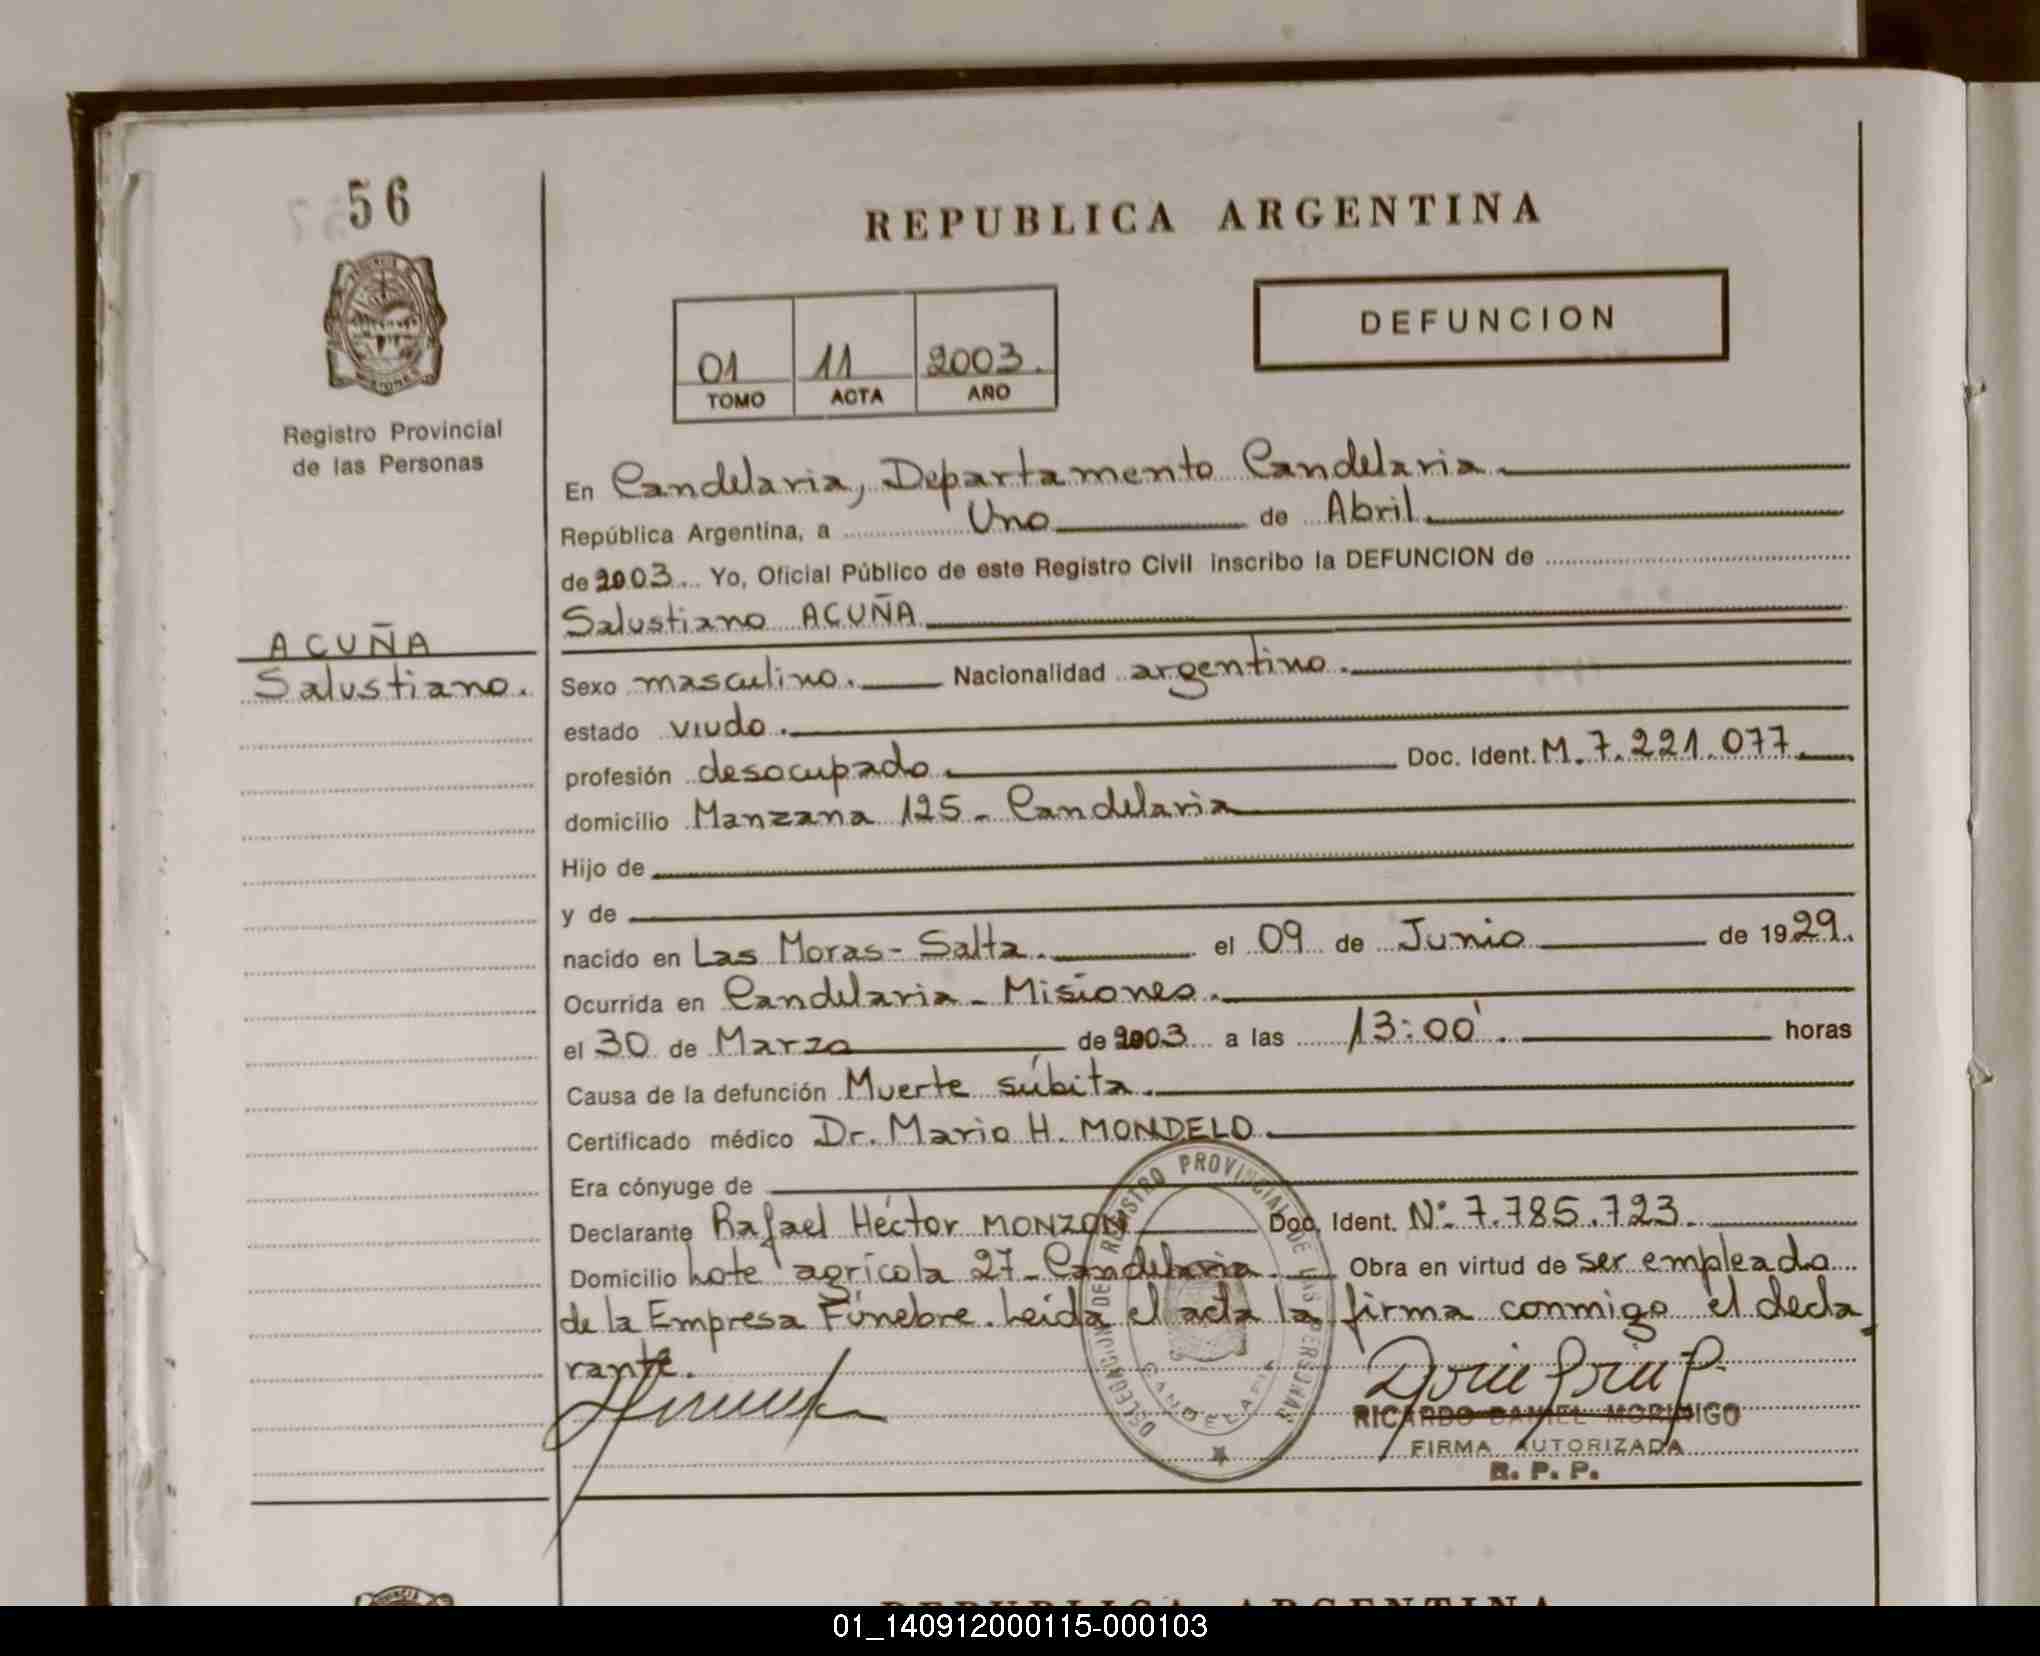 56
REPUBLICA ARGENTINA
DEFUNCION
01 11 2003.
TOMO ACTA AÑO
Registro Provincial
de las Personas
En Candelaria, Departamento Candelaria
República Argentina, a Uno de Abril
de 2003 Yo, Oficial Público de este Registro Civil inscribo la DEFUNCION de
Salustiano ACUÑA
ACUÑA
Salustiano.
Sexo masculino. Nacionalidad argentino.
estado viudo.
profesión desocupado. Doc. Ident. M. 7.221.077.
domicilio Manzana 125 - Candelaria
Hijo de
y de
nacido en Las Moras - Salta. el 09 de Junio de 1929.
Ocurrida en Candelaria - Misiones.
el 30 de Marzo de 2003 a las 13:00'. horas
Causa de la defunción Muerte súbita.
Certificado médico Dr. Mario H. MONDELO.
Era cónyuge de
Declarante Rafael Héctor MONZON Doc. Ident. Nº 7.785.723.
Domicilio Lote agrícola 27 - Candelaria. Obra en virtud de ser empleado
de la Empresa Fúnebre. Leída el acta la firma conmigo el decla
rante.
DELEGACION DE REGISTRO PROVINCIAL DE LAS PERSONAS
CANDELARIA
RICARDO DANIEL MORINIGO
FIRMA AUTORIZADA
R. P. P.
REPUBLICA ARGENTINA
01_140912000115-000103